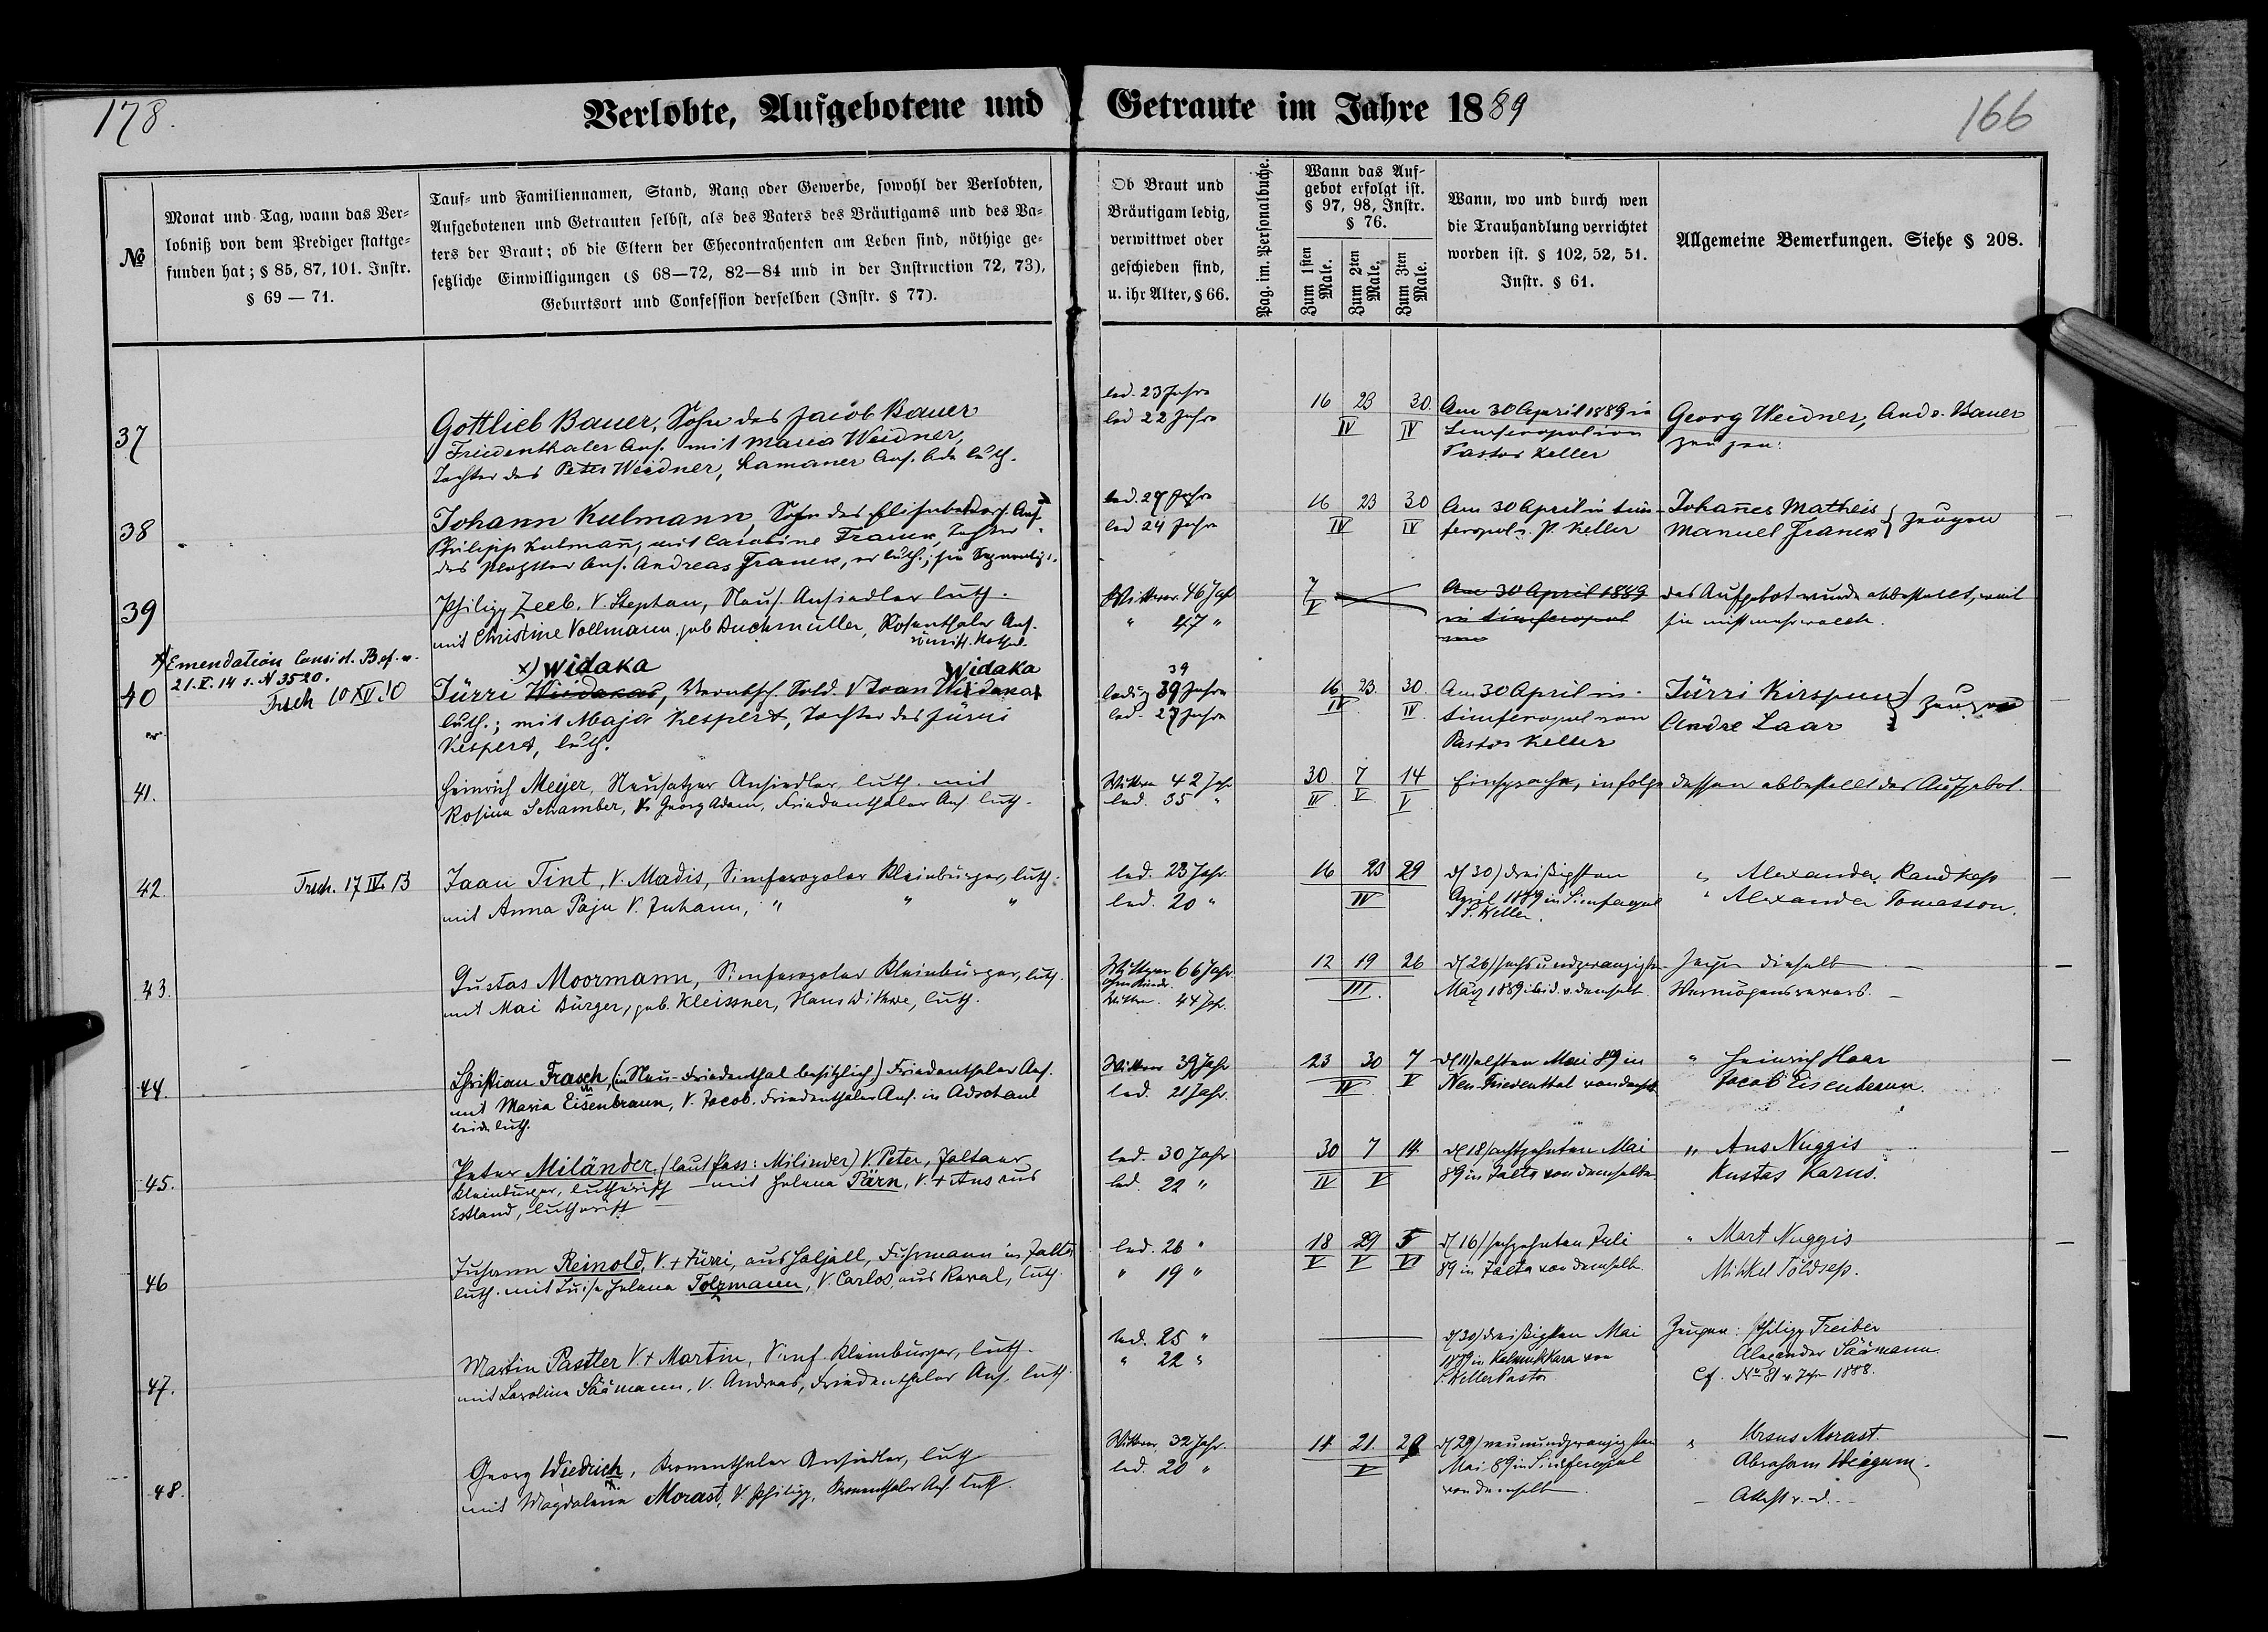 178.
Verlobte, Aufgebotene und Getraute im Jahre 1889
166
№
Monat und Tag, wann das Ver-
lobniß von dem Prediger stattge-
funden hat; § 85, 87, 101. Instr.
§ 69 — 71.
Tauf- und Familiennamen, Stand, Rang oder Gewerbe, sowohl der Verlobten,
Aufgebotenen und Getrauten selbst, als des Vaters des Bräutigams und des Va-
ters der Braut; ob die Eltern der Ehecontrahenten am Leben sind, nöthige ge-
setzliche Einwilligungen (§ 68—72, 82—84 und in der Instruction 72, 73),
Geburtsort und Confession derselben (Instr. § 77).
Ob Braut und
Bräutigam ledig,
verwittwet oder
geschieden sind,
u. ihr Alter, § 66.
Pag. im. Personalbuche.
Wann das Auf-
gebot erfolgt ist.
§ 97, 98, Instr.
§ 76.
Zum 1sten
Male.
Zum 2ten
Male.
Zum 3ten
Male.
Wann, wo und durch wen
die Trauhandlung verrichtet
worden ist. § 102, 52, 51.
Instr. § 61.
Allgemeine Bemerkungen. Siehe § 208.
37
Gottlieb Bauer, Sohn des Jacob Bauer
Friedenthaler Ans. mit Maria Weidner,
Tochter des Peter Weidner, Ans. luth.
led. 23 Jahre
led 22 Jahre
16 23 30
IV IV
Am 30 April 1889 in
Simferopol von
Pastor Keller
Georg Weidner, Andr. Bauer
Zeugen:
38
Johann Kulmann, Sohn des Ans.
Philipp Kulmann, mit Carolina Franck, Tochter
des Ans. Andreas Franck, er luth.; sie
led. 27 Jahre
led 24 Jahre
16 23 30
IV IV
Am 30 April in Sim-
feropol v. P. Keller
Johannes Matheis
Manuel Franck } Zeugen
39
Philipp Zeeb, V. Stephan, Neus. Ansiedler luth.
mit Christine Vollmann geb Buchmüller, Rosenthaler Ans.
römisch. Kathol.
Wittwer 46 Jahr
" 47 "
7
V
Am 30 April 1889
in Simferopol
von
das Aufgebot wurde abbestellt, weil
sie nicht mehr wollte.
x) Emendation Consist. Bef. v.
21. X. 14 s. N 3520.
40
Trsch 10 XII 10
x) Widaka Widaka
Jürri Widakas, Verabsch. Sold. V Joan Widakas
luth.; mit Maja Kespert, Tochter des Jürri
Kespert, luth.
39
ledig 39 Jahre
led. 27 Jahre
16 23. 30.
IV IV.
Am 30 April in
Simferopol von
Pastor Keller
Jürri Kirspuu
Andre Laar } Zeugen
41.
Heinrich Meyer, Neusatzer Ansiedler, luth. mit
Rosina Schamber, V. Georg Adam, Friedenthaler Ans. luth.
Wittwer 42 Jahr
led. 35 "
30 7 14
IV V V
Einsprache, infolge dessen abbestellt das Aufgebot.
42.
Trsch. 17 IV. 13
Jaan Tint, V. Madis, Simferopoler Kleinbürger, luth.
mit Anna Paju V. Juhann, " " "
led. 23 Jahr.
led. 20 "
16 23 29
IV
d (30) dreißigsten
April 1889 in Simferopol
v. P. Keller.
" Alexander Randkep
" Alexander Tomasson.
43.
Gustas Moormann, Simferopoler Kleinbürger, luth.
mit Mai Bürger, geb. Kleissner, Hans Wittwe, luth.
Wittwer 66 Jahr.
Wittwe. 44 Jahr.
12 19 26
III.
d (26) sechsundzwanzigsten
März 1889 ibid. v. demselb.
Zeugen dieselb
Vermögensrevers. —
44.
Christian Frasch, (in Neu-Friedenthal besitzlich) Friedenthaler Ans.
mit Maria Eisenbraun, V. Jacob. Friedenthaler Ans. in Adschaul
beide luth.
Wittwer 39 Jahr
led. 21 Jahr.
23 30 7
IV V
d (11) elften Mai 89 in
Neu-Friedenthal von demselb.
" Heinrich Haar
Jacob Eisenbraun.
45.
Peter Miländer (laut Pass: Milinder) V. Peter, Jaltaer
Kleinbürger, lutherisch — mit Helena Pärn, V. + Ans aus
Estland, lutherisch
led. 30 Jahr
led. 22 "
30 7 14.
IV V
d (18) achtzehnten Mai
89 in Jalta von demselben
" Ans Nuggis
Kustas Karus.
46
Juhann Reinold, V. + Jürri, aus Haljall, Fuhrmann in Jalta
luth. mit Luise Helena Tolzmann, V. Carlos, aus Reval, luth.
led. 26 "
" 19 "
18 29 5
V V VI
d (16) sechzehnten Juli
89 in Jalta von demselb.
" Mart Nuggis
Mihkel Põldsep.
47.
Martin Pastler V. + Martin, Simf. Kleinbürger, luth.
mit Karolina Säämann, V. Andreas, Friedenthaler Ans. luth.
led. 25 "
" 22 "
d (30) dreißigsten Mai
1889 in Kalmuk Kara von
P. Keller Pastor
Zeugen: Philipp Treiber
Alexander Säämann.
Cf. No 81 v. Jahr 1888.
48.
Georg Wiedrich, Kronenthaler Ansiedler, luth
mit Magdalena Morast, V. Philipp, Kronenthaler Ans. luth.
Wittwer, 32 Jahr.
led. 20 "
14 21. 28
V
d (29) neunundzwanzigsten
Mai 89 in Simferopol
von demselb.
" Ursus Morast.
Abraham Weigum.
— Attest v. d. —